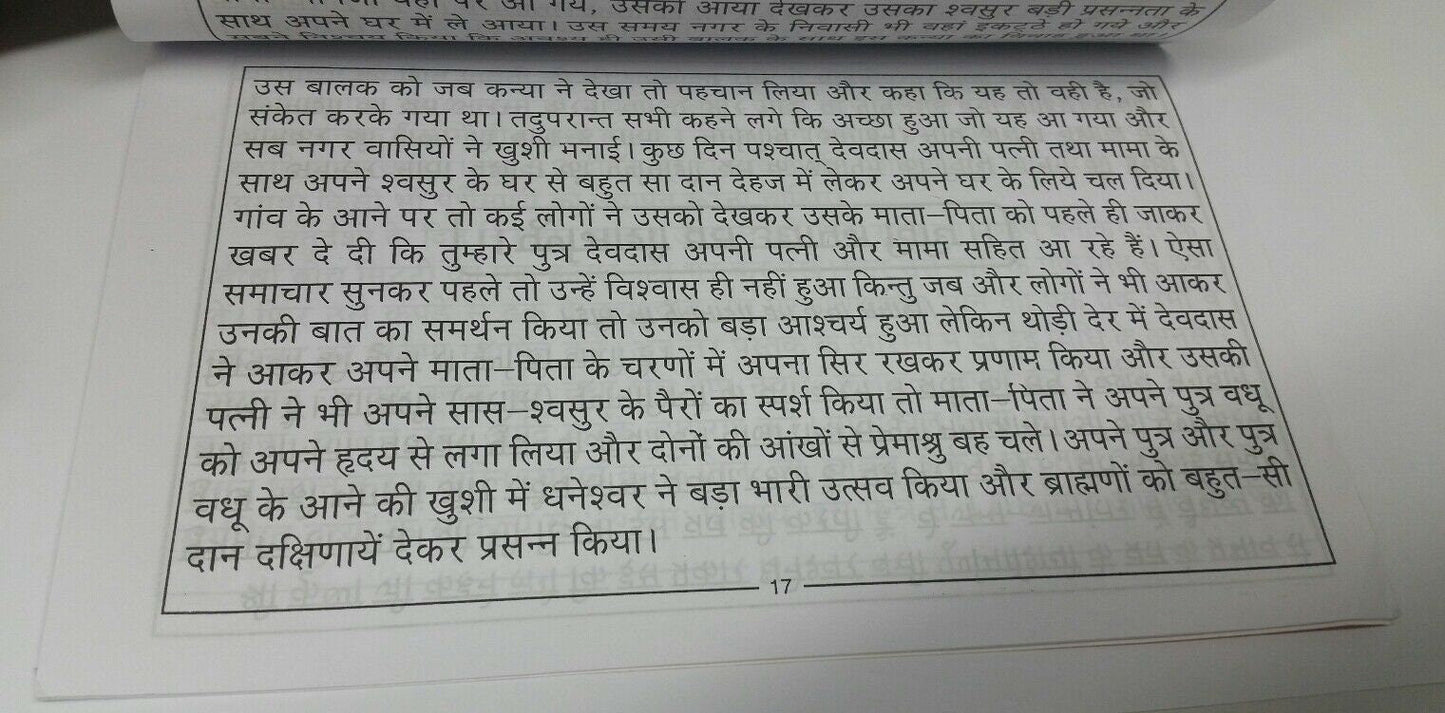 यहां पर आ गये, उसको आया देखकर उसका श्वसुर बड़ी प्रसन्नता के
साथ अपने घर में ले आया। उस समय नगर के निवासी भी वहां इकट्ठे हो गये और
उस बालक को जब कन्या ने देखा तो पहचान लिया और कहा कि यह तो वही है, जो
संकेत करके गया था। तदुपरान्त सभी कहने लगे कि अच्छा हुआ जो यह आ गया और
सब नगर वासियों ने खुशी मनाई। कुछ दिन पश्चात् देवदास अपनी पत्नी तथा मामा के
साथ अपने श्वसुर के घर से बहुत सा दान देहज में लेकर अपने घर के लिये चल दिया।
गांव के आने पर तो कई लोगों ने उसको देखकर उसके माता–पिता को पहले ही जाकर
खबर दे दी कि तुम्हारे पुत्र देवदास अपनी पत्नी और मामा सहित आ रहे हैं। ऐसा
समाचार सुनकर पहले तो उन्हें विश्वास ही नहीं हुआ किन्तु जब और लोगों ने भी आकर
उनकी बात का समर्थन किया तो उनको बड़ा आश्चर्य हुआ लेकिन थोड़ी देर में देवदास
ने आकर अपने माता–पिता के चरणों में अपना सिर रखकर प्रणाम किया और उसकी
पत्नी ने भी अपने सास–श्वसुर के पैरों का स्पर्श किया तो माता–पिता ने अपने पुत्र वधू
को अपने हृदय से लगा लिया और दोनों की आंखों से प्रेमाश्रु बह चले। अपने पुत्र और पुत्र
वधू के आने की खुशी में धनेश्वर ने बड़ा भारी उत्सव किया और ब्राह्मणों को बहुत–सी
दान दक्षिणायें देकर प्रसन्न किया।
17